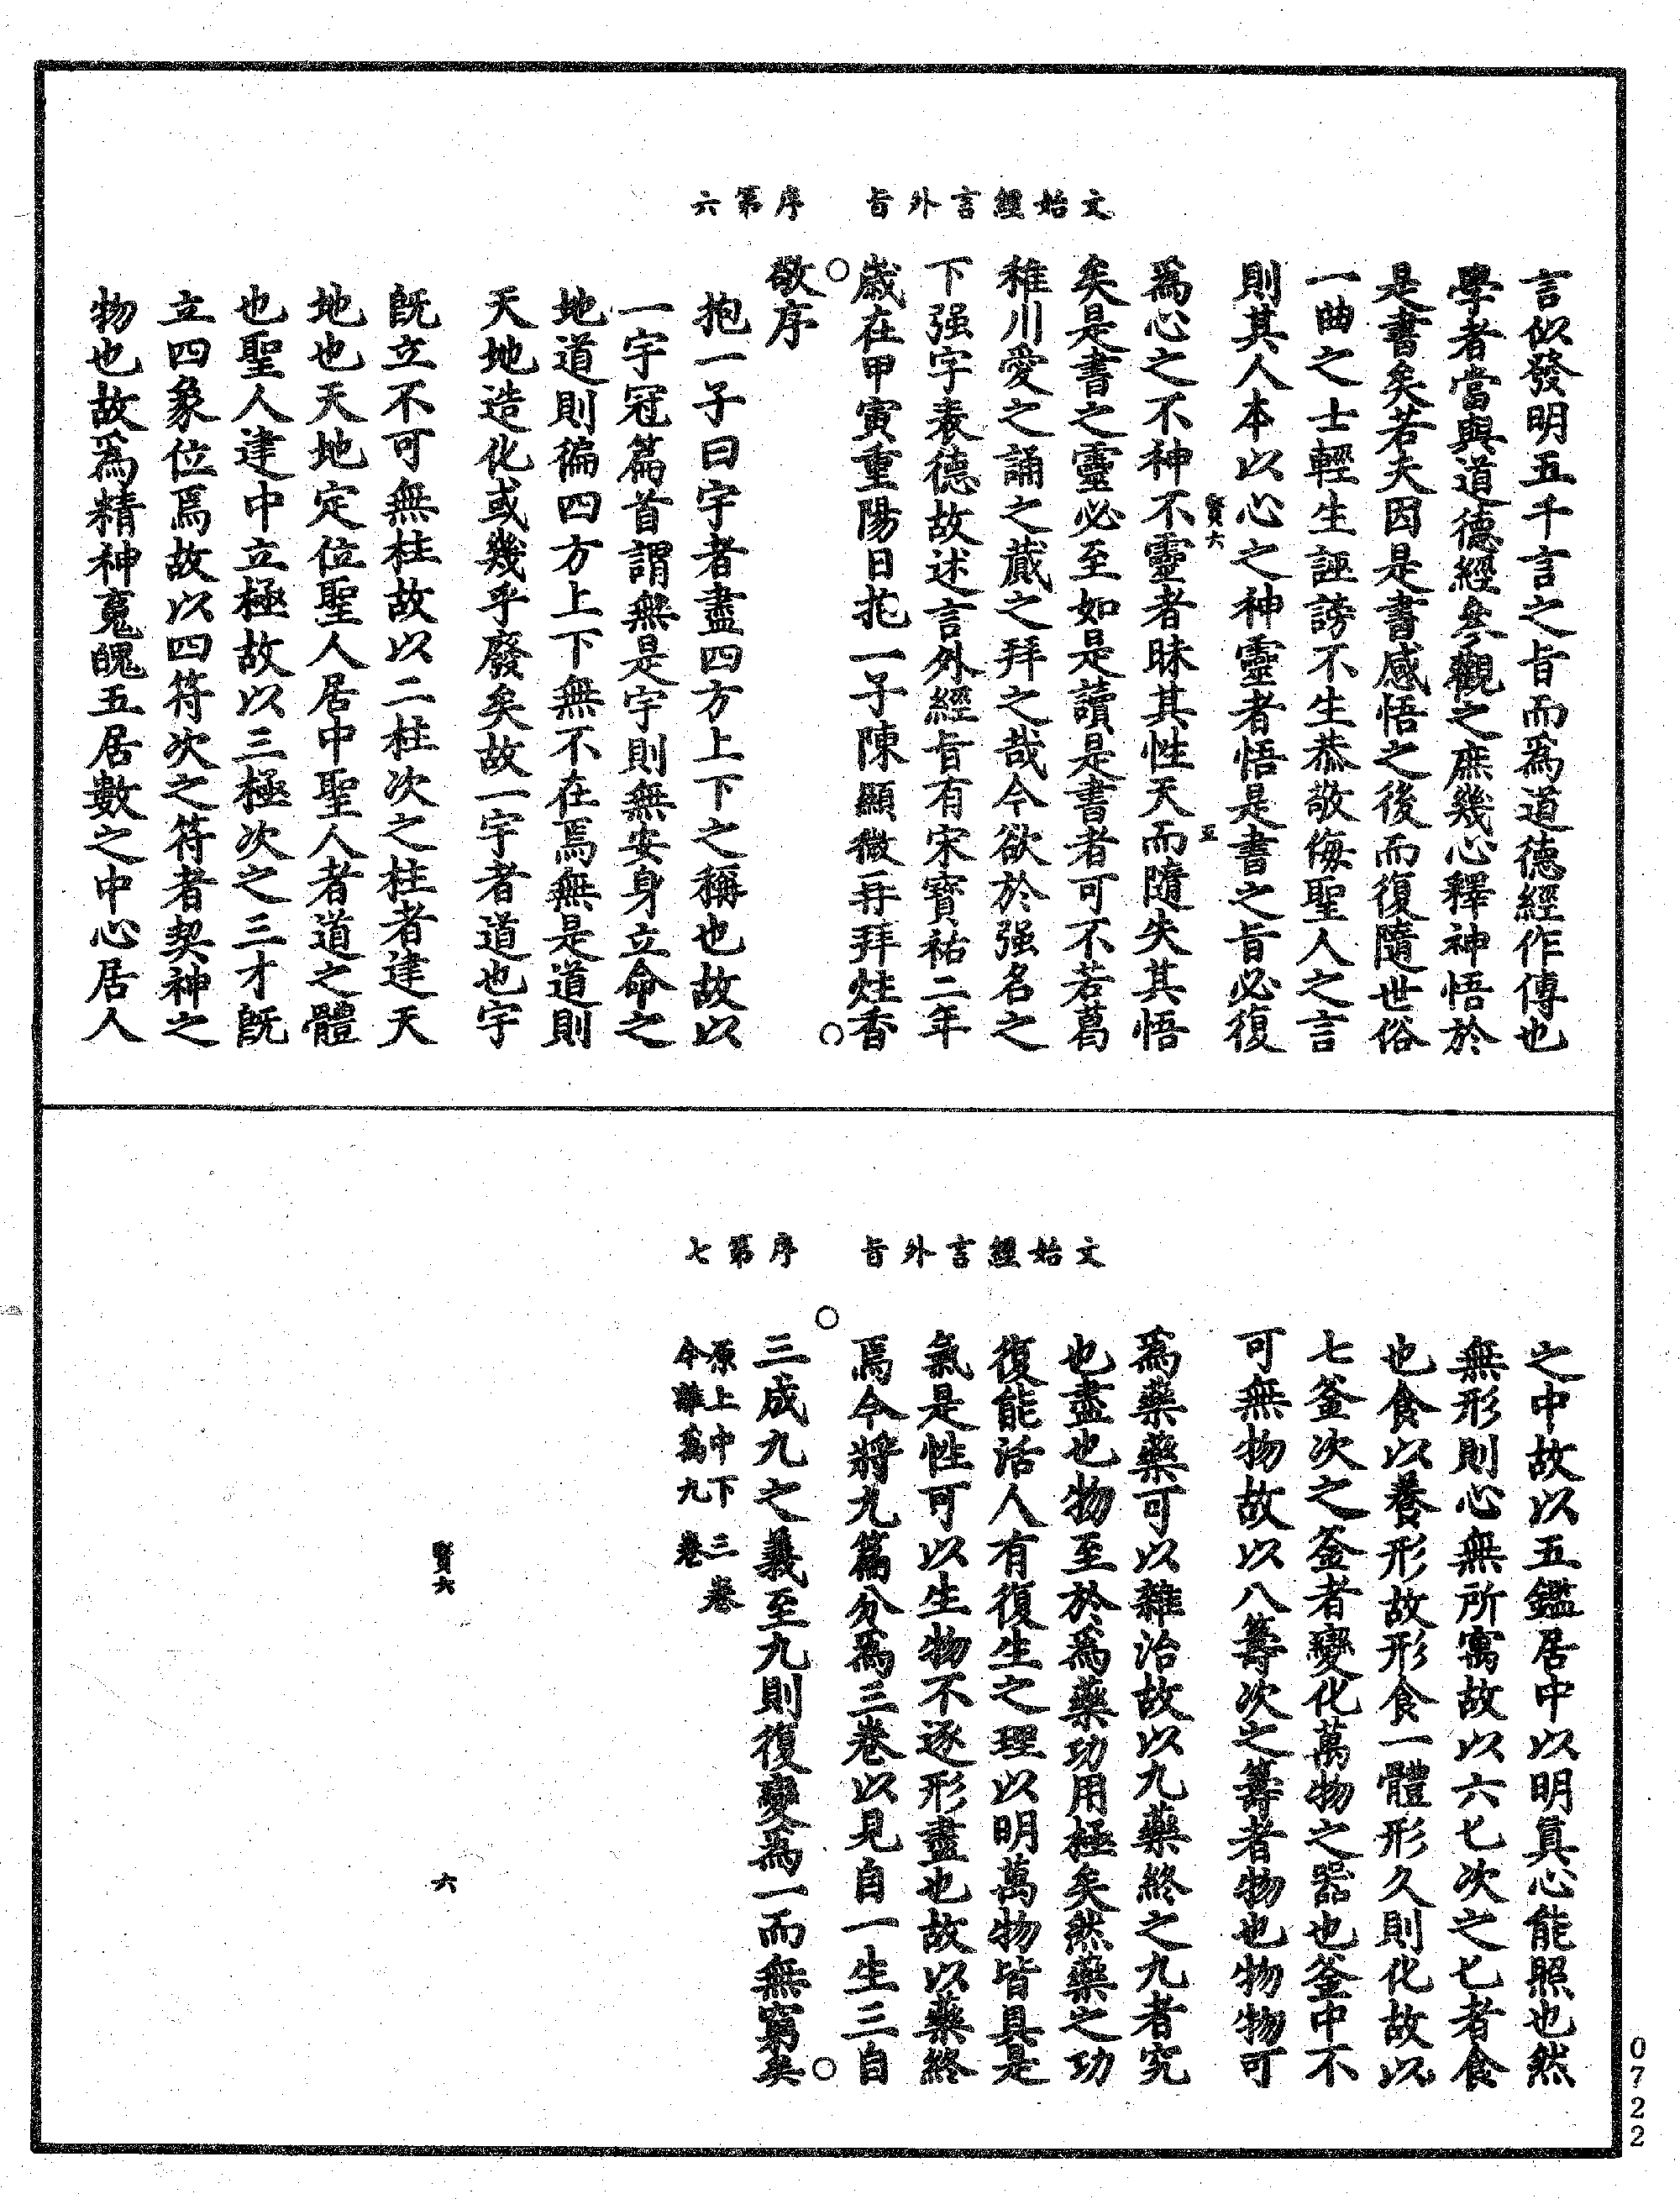 文始經言外旨　序第六
言似發明五千言之旨而爲道德經作傳也
學者當與道德經叅觀之庶幾心釋神悟於
是書矣若夫因是書感悟之後而復隨世俗
一曲之士輕生誣謗不生恭敬侮聖人之言
則其人本以心之神靈者悟是書之旨必復
賢六　五
爲心之不神不靈者昧其性天而隨失其悟
矣是書之靈必至如是讀是書者可不若葛
稚川愛之誦之藏之拜之哉今欲於强名之
下强字表德故述言外經旨有宋寶祐二年
歲在甲寅重陽日抱一子陳顯微再拜炷香
敬序
抱一子曰宇者盡四方上下之稱也故以
一宇冠篇首謂無是宇則無安身立命之
地道則徧四方上下無不在焉無是道則
天地造化或幾乎廢矣故一宇者道也宇
旣立不可無柱故以二柱次之柱者建天
地也天地定位聖人居中聖人者道之體
也聖人建中立極故以三極次之三才旣
立四象位焉故以四符次之符者契神之
物也故爲精神䰟魄五居數之中心居人
文始經言外旨　序第七
之中故以五鑑居中以明眞心能照也然
無形則心無所寓故以六匕次之匕者食
也食以養形故形食一體形久則化故以
七釜次之釜者變化萬物之器也釜中不
可無物故以八籌次之籌者物也物物可
爲藥藥可以雜治故以九藥終之九者究
也盡也物至於爲藥功用極矣然藥之功
復能活人有復生之理以明萬物皆具是
氣是性可以生物不逐形盡也故以藥終
焉今將九篇分爲三卷以見自一生三自
三成九之義至九則復變爲一而無窮矣
原上中下三卷
今離爲九卷
賢六　六
0722